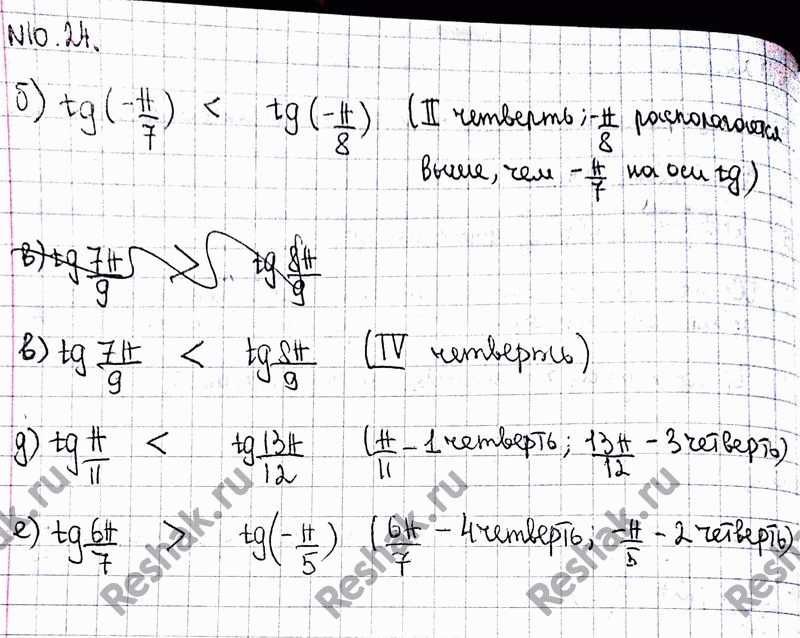 N10.24.
б) tg(-π/7) < tg(-π/8) (II четверть; -π/8 располагается
выше, чем -π/7 на оси tg)
в) tg 7π/9 > tg 8π/9
в) tg 7π/9 < tg 8π/9 (IV четверть)
д) tg π/11 < tg 13π/12 (π/11 – 1 четверть; 13π/12 – 3 четверть)
е) tg 6π/7 > tg(-π/5) (6π/7 – 4 четверть; -π/5 – 2 четверть)
Reshak.ru
Reshak.ru
Reshak.ru
Reshak.ru
Reshak.ru